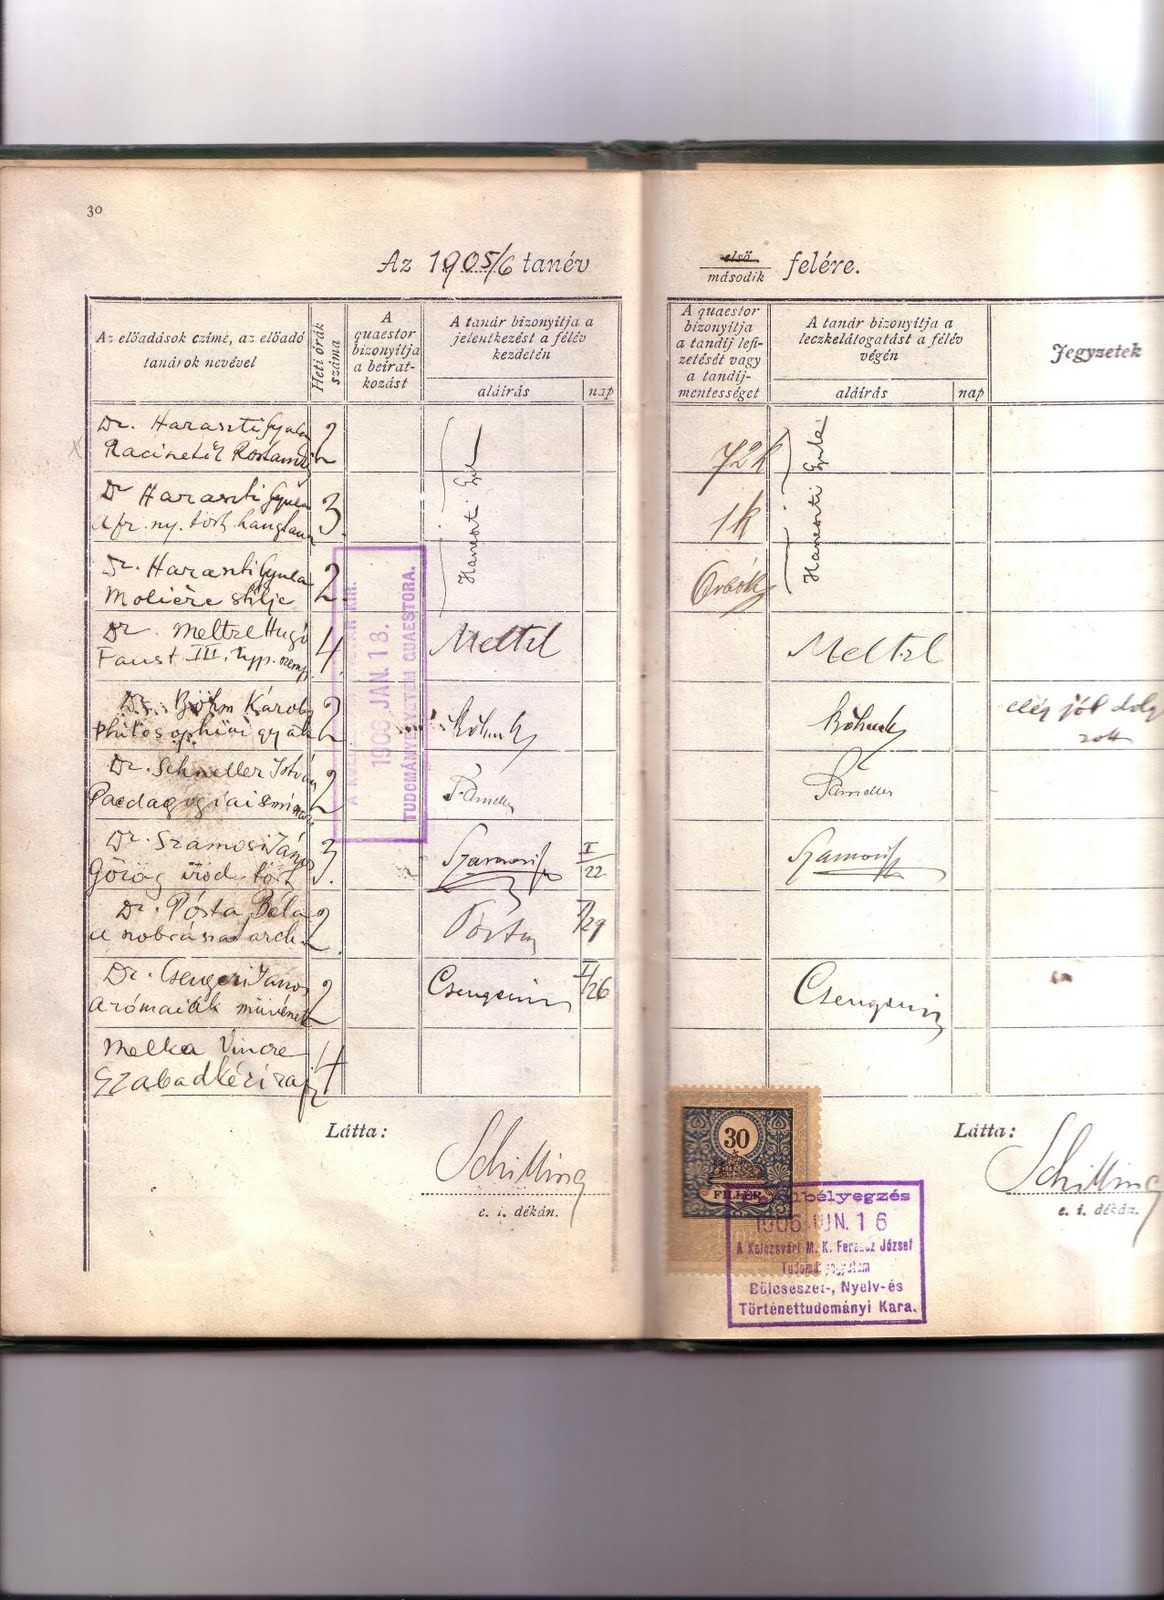 30
Az 1905/6 tanév
első
második felére.
Az előadások czíme, az előadó
tanárok nevével
Heti órák
száma
A
quaestor
bizonyítja
a beirat-
kozást
A tanár bizonyítja a
jelentkezést a félév
kezdetén
aláírás
nap
A quaestor
bizonyítja
a tandíj lefi-
zetését vagy
a tandíj-
mentességet
A tanár bizonyítja a
leczkelátogatást a félév
végén
aláírás
nap
Jegyzetek
Dr. Haraszti Gyula
Racinetől Rostandig
2
Haraszti Gyula
72k
Haraszti Gyula
Dr Haraszti Gyula
A fr. ny. tört. hangtan
3
1k
Dr. Haraszti Gyula
Molière stílje
2
Dr. Meltzl Hugó
Faust III.
4
Meltzl
Meltzl
Dr. Böhm Károly
Philosophiai gyak
2
Böhm K
Böhm K
elég jól dolg
zott
Dr. Schneller István
Paedagogiai
2
Dr. Szamosi János
Görög irod. tört.
3
Szamosi
I/22
Szamosi
Dr. Pósta Béla
a arch.
2
Pósta
I/29
Dr. Csengeri János
a rómaiak
2
Csengeri
I/26
Csengeri
Melka Vincze
Szabadkézi rajz
4
1906 JAN. 18.
TUDOMÁNYEGYETEM QUAESTORA.
Látta:
Schilling
e. i. dékán.
Látta:
Schilling
e. i. dékán.
30
FILLÉR
1906 JUN. 16
A Kolozsvári M. K. Ferencz József
Tudományegyetem
Bölcseszet-, Nyelv-és
Történettudományi Kara.